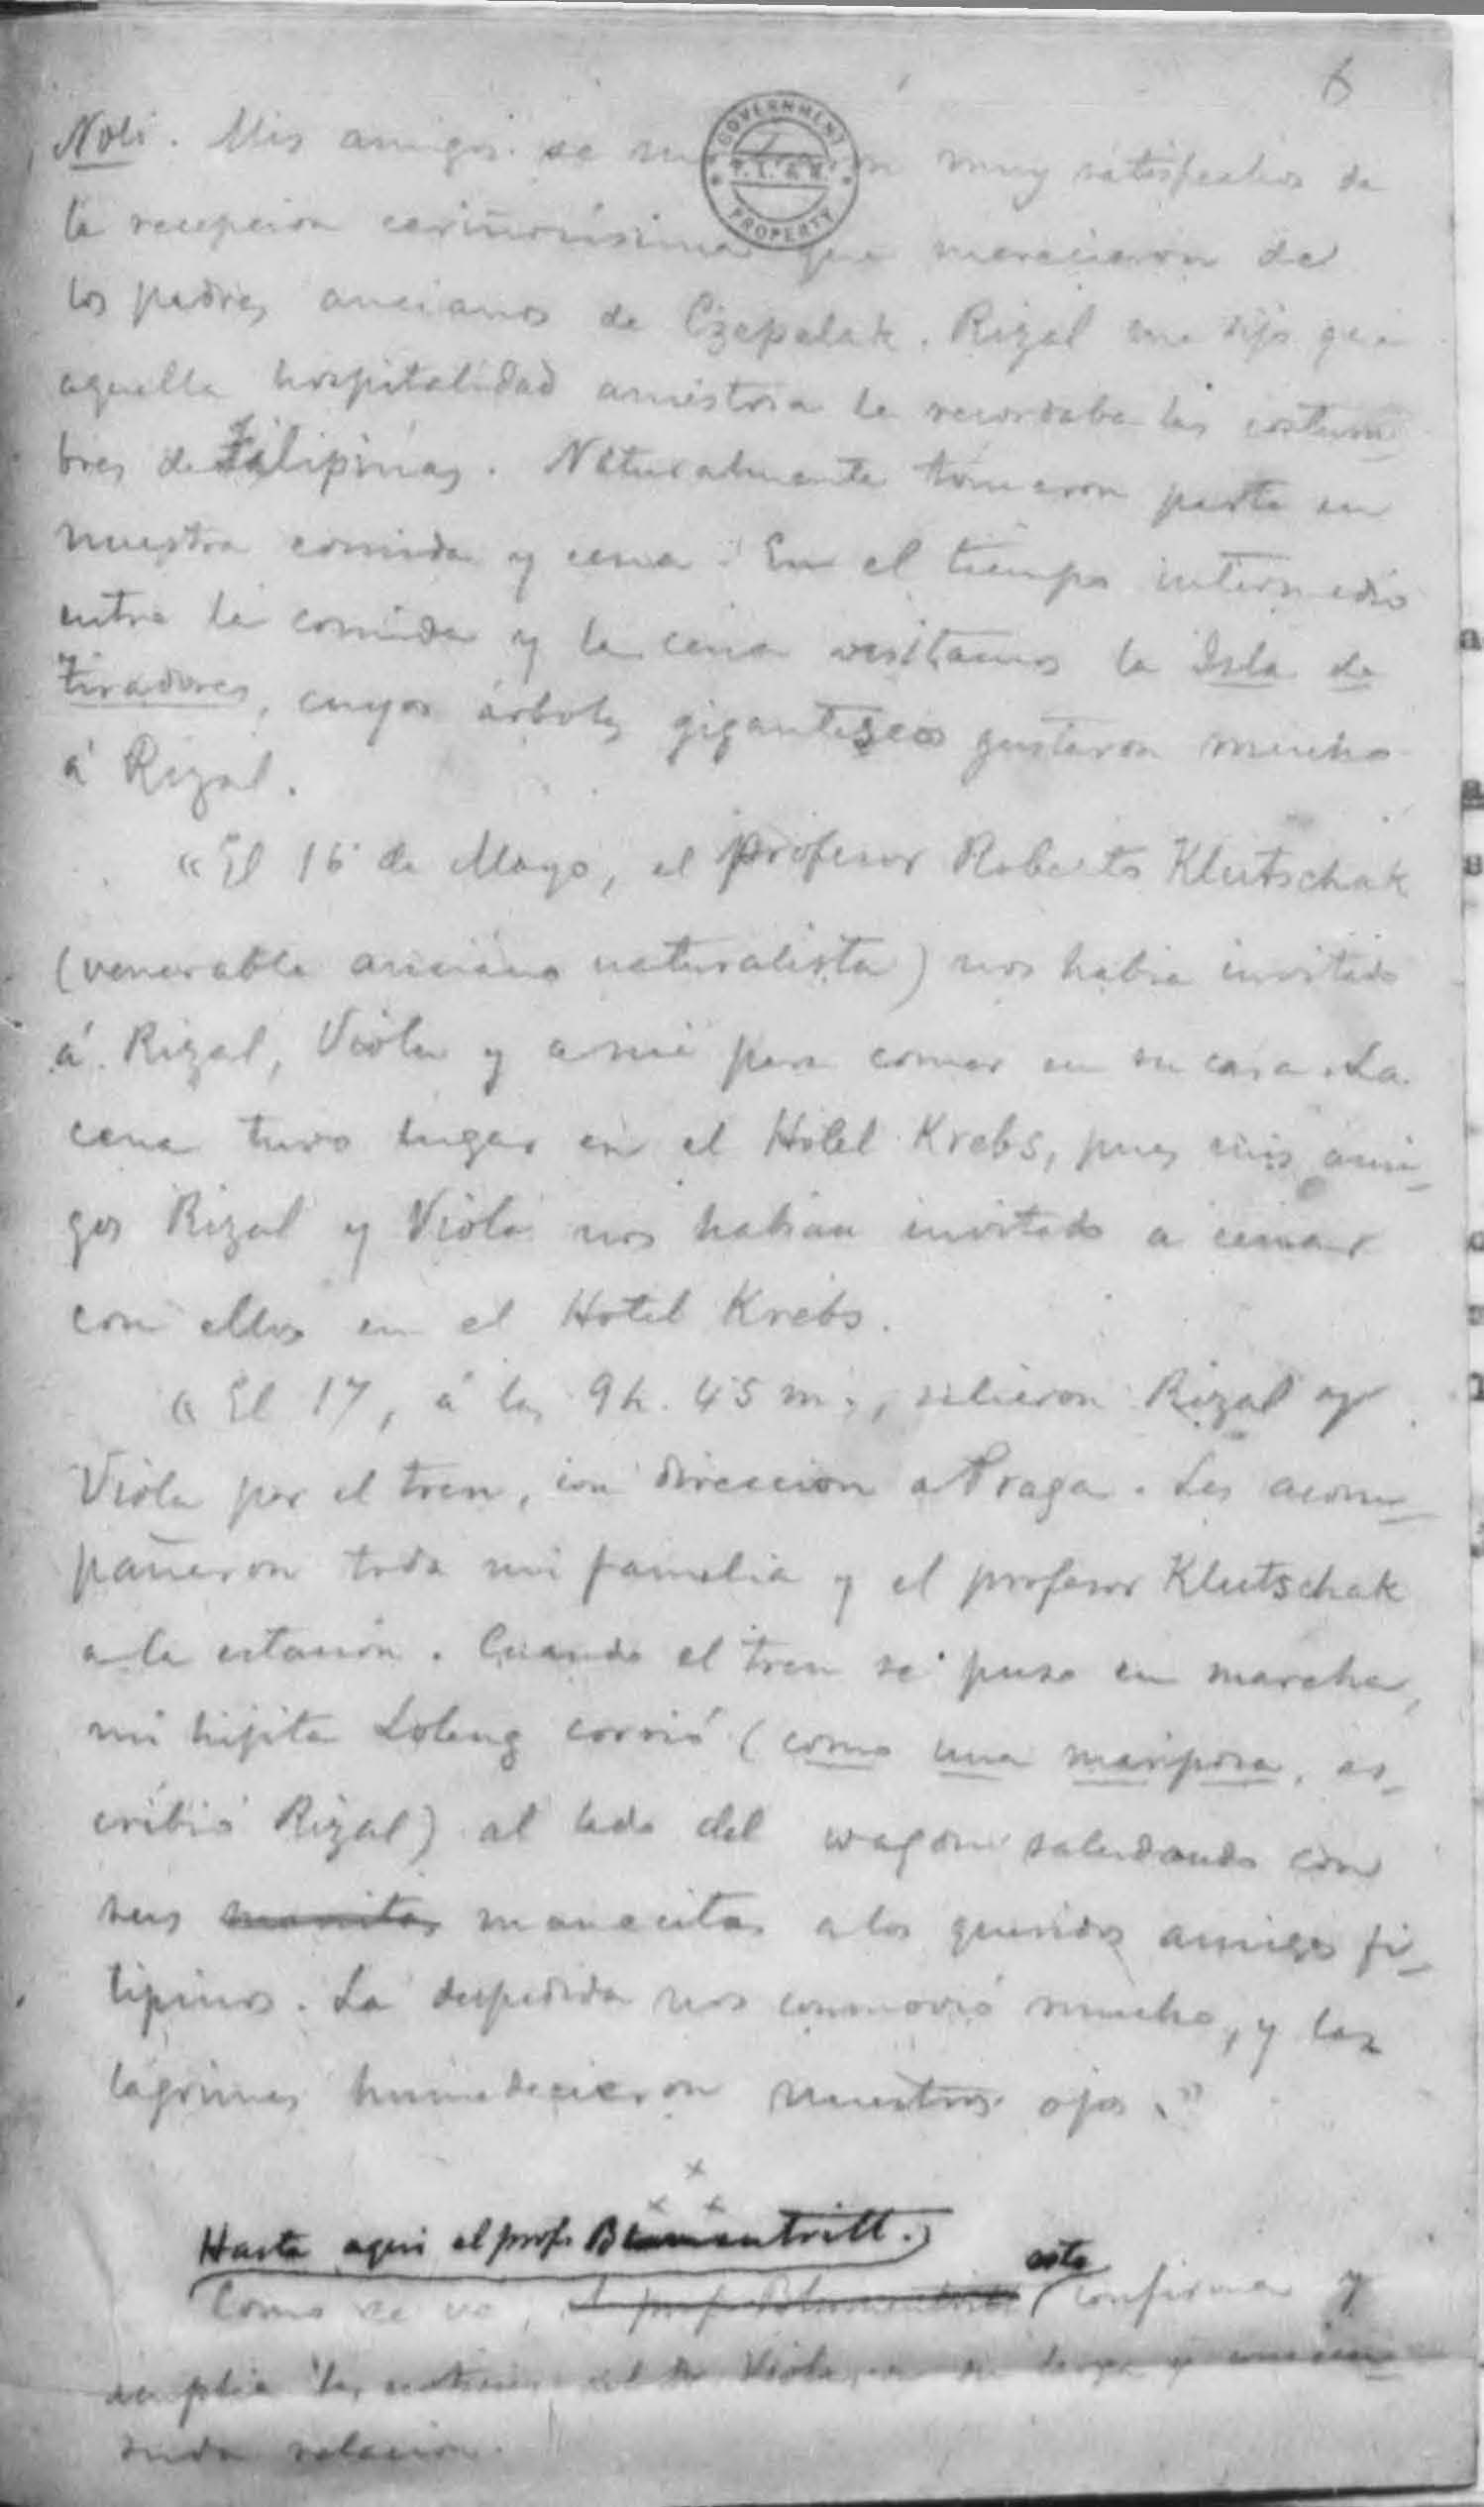 6
GOVERNMENT
PROPERTY
Noli. Mis amigos se muy satisfechos de
la recepcion cariñosísima que merecieron de
los padres ancianos de Czepelak. Rizal me dijo que
aquella hospitalidad amistosa le recordaba las costum-
bres de Filipinas. Naturalmente tomaron parte en
nuestra comida y cena. En el tiempo intermedio
entre la comida y la cena visitamos la Isla de
tiradores, cuyos árboles gigantescos gustaron mucho
á Rizal.
«El 16 de Mayo, el profesor Roberto Klutschak
(venerable anciano naturalista) nos habia invitado
á Rizal, Viola y a mi para comer en su casa. La
cena tuvo lugar en el Hotel Krebs, pues mis ami-
gos Rizal y Viola nos habian invitado a cenar
con ellos en el Hotel Krebs.
«El 17, á las 9h. 45 m., salieron Rizal y
Viola por el tren, con direccion a Praga. Les acom-
pañaron toda mi familia y el profesor Klutschak
a la estacion. Cuando el tren se puso en marcha,
mi hijita Loleng corrió (como una mariposa, es-
cribió Rizal) al lado del wagon saludando con
sus manitas manecitas a los queridos amigos fi-
lipinos. La despedida nos conmovió mucho, y las
lágrimas humedecieron nuestros ojos."
x
x x
Hasta aqui el prof. Blumentritt.
Como se vé, el prof. Blumentritt este confirma y
amplia las noticias del Dr Viola, en su larga y
relacion.